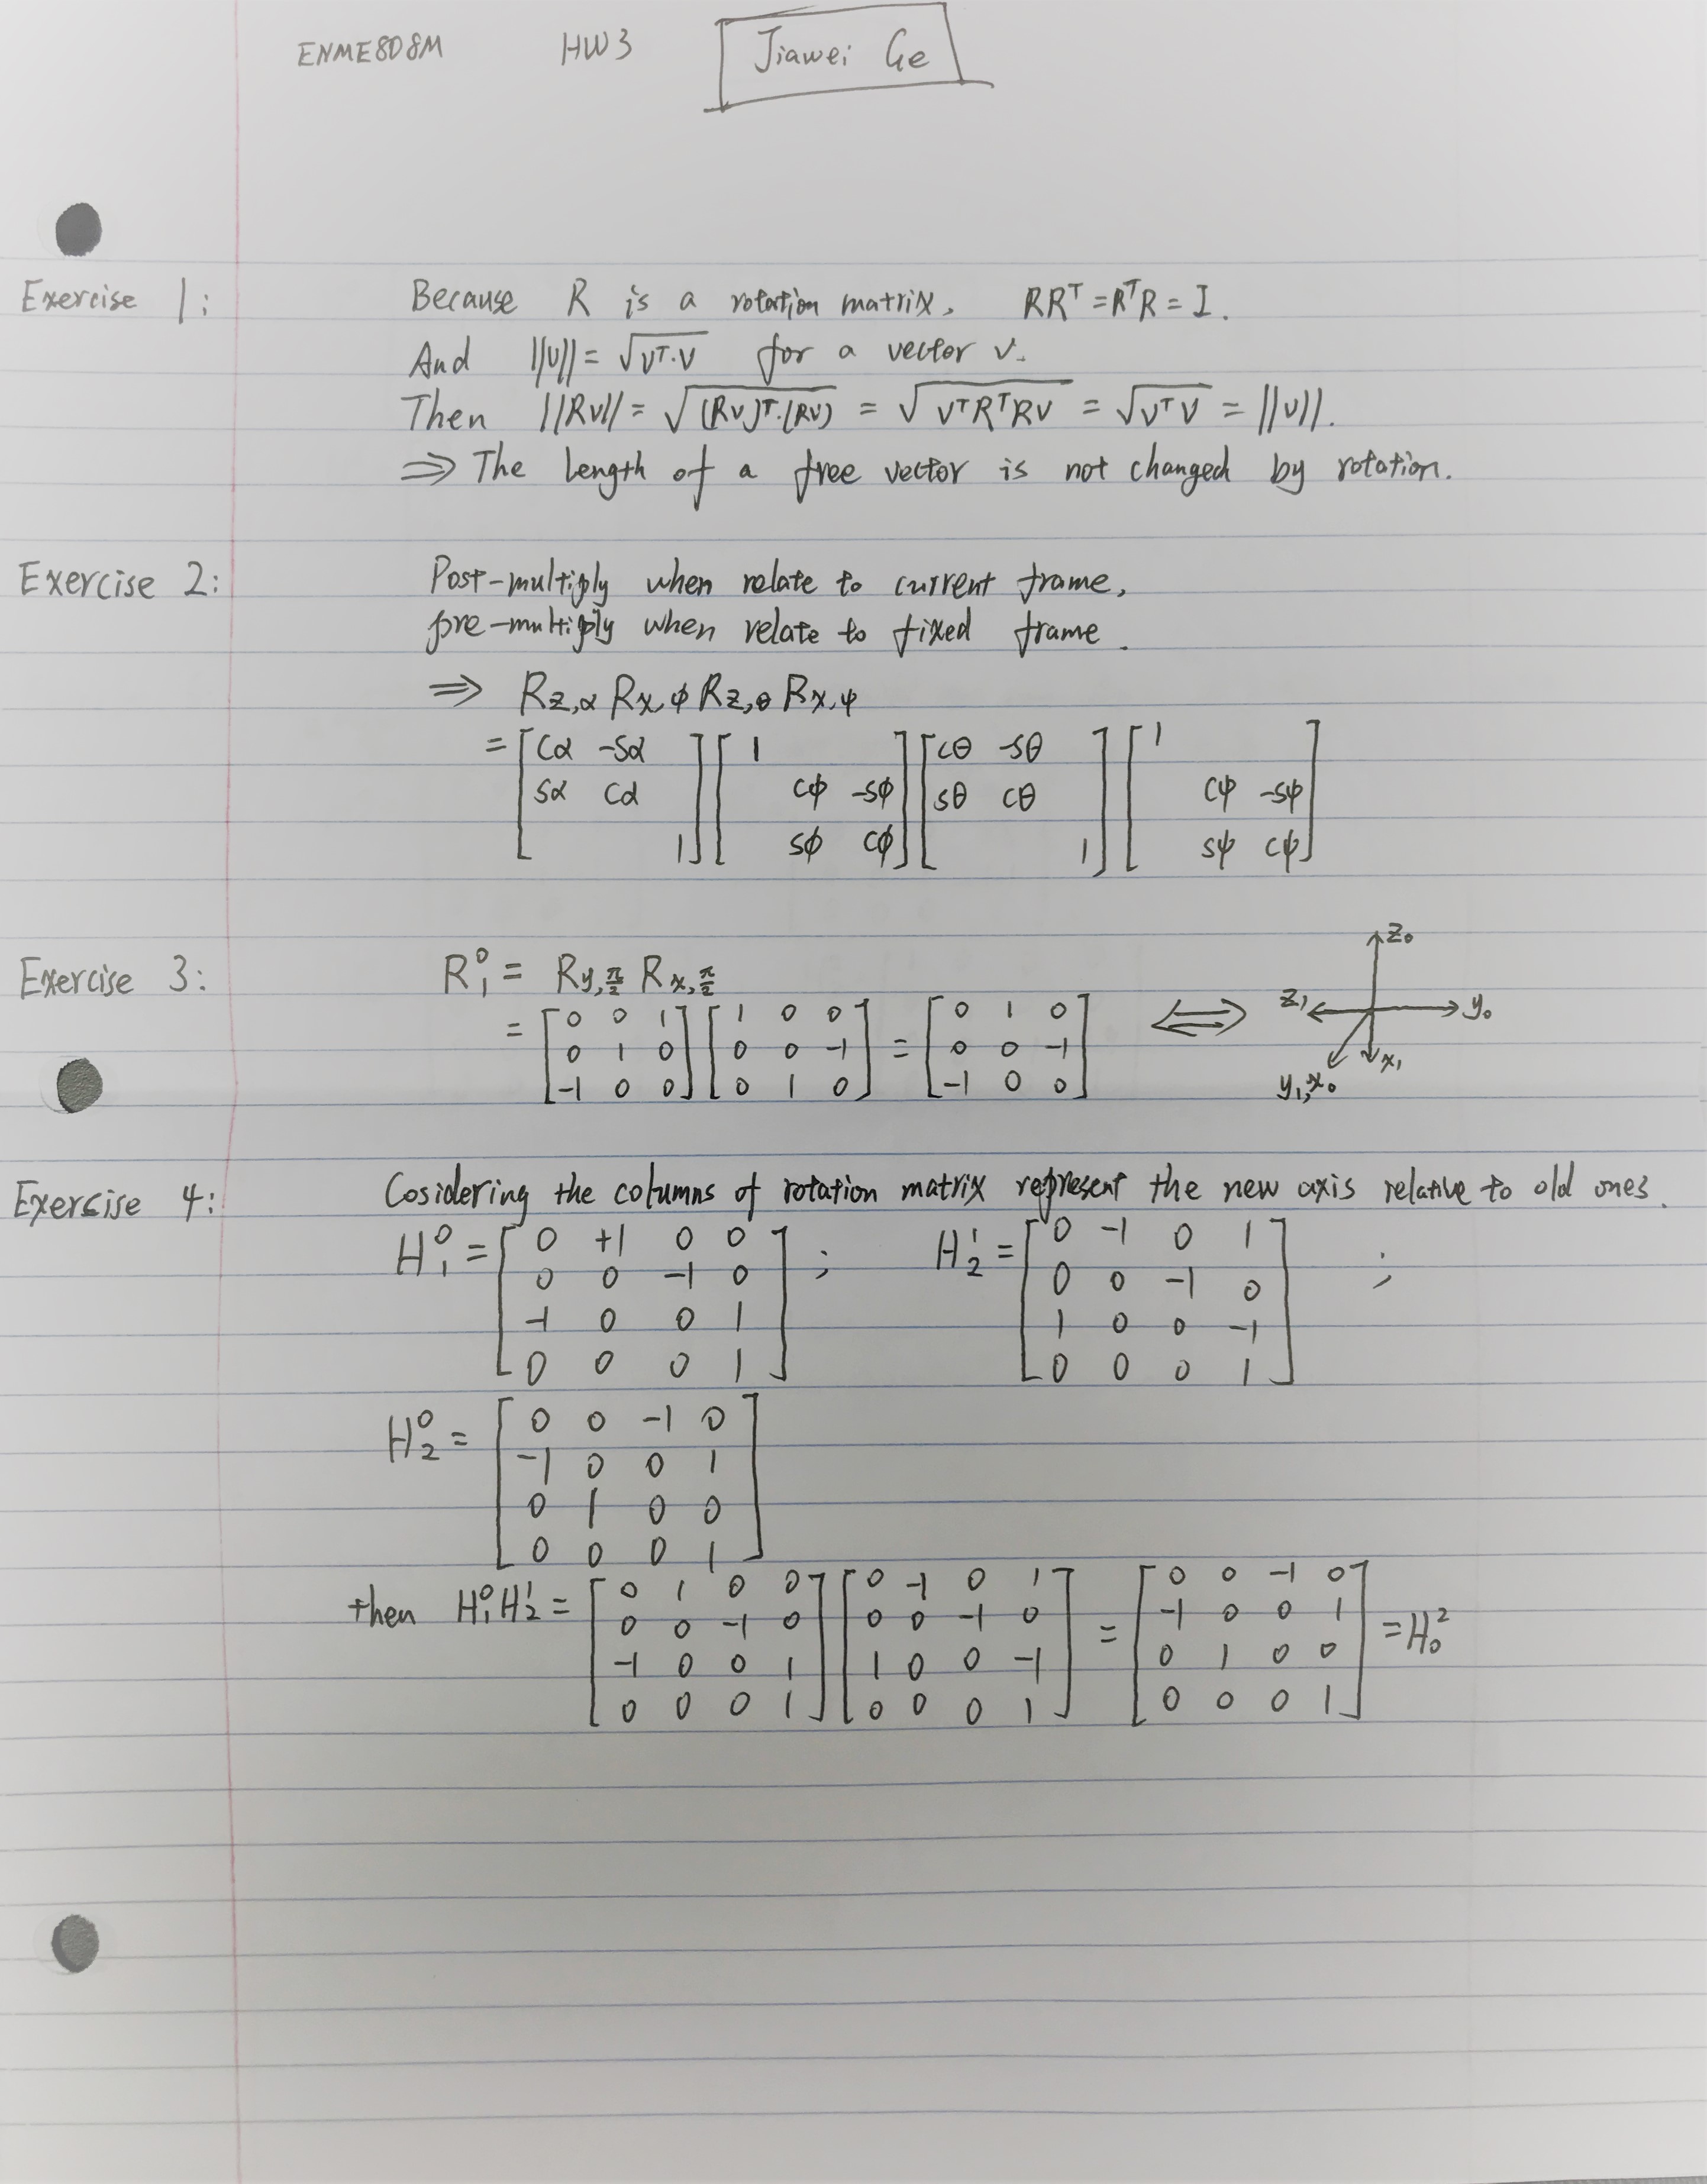 ENME808M HW3 Jiawei Ge
Exercise 1: Because R is a rotation matrix, RRᵀ = RᵀR = I.
And ||v|| = √(vᵀ·v) for a vector v.
Then ||Rv|| = √((Rv)ᵀ·(Rv)) = √(vᵀRᵀRv) = √(vᵀv) = ||v||.
⇒ The length of a free vector is not changed by rotation.
Exercise 2: Post-multiply when relate to current frame,
pre-multiply when relate to fixed frame.
⇒ R_z,α R_x,φ R_z,θ R_x,ψ
= [cα -sα ] [1 ] [cθ -sθ ] [1 ]
[sα cα ] [ cφ -sφ] [sθ cθ ] [ cψ -sψ]
[ 1] [ sφ cφ] [ 1] [ sψ cψ]
Exercise 3: R₁⁰ = R_y,π/2 R_x,π/2
= [0 0 1] [1 0 0] = [0 1 0] ⇔
[0 1 0] [0 0 -1] [0 0 -1]
[-1 0 0] [0 1 0] [-1 0 0]
z₀
z₁ y₀
x₁
y₁,x₀
Exercise 4: Cosidering the columns of rotation matrix represent the new axis relative to old ones.
H₁⁰ = [0 +1 0 0] ; H₂¹ = [0 -1 0 1] ;
[0 0 -1 0] [0 0 -1 0]
[-1 0 0 1] [1 0 0 -1]
[0 0 0 1] [0 0 0 1]
H₂⁰ = [0 0 -1 0]
[-1 0 0 1]
[0 1 0 0]
[0 0 0 1]
then H₁⁰H₂¹ = [0 1 0 0] [0 -1 0 1] = [0 0 -1 0] = H₀²
[0 0 -1 0] [0 0 -1 0] [-1 0 0 1]
[-1 0 0 1] [1 0 0 -1] [0 1 0 0]
[0 0 0 1] [0 0 0 1] [0 0 0 1]